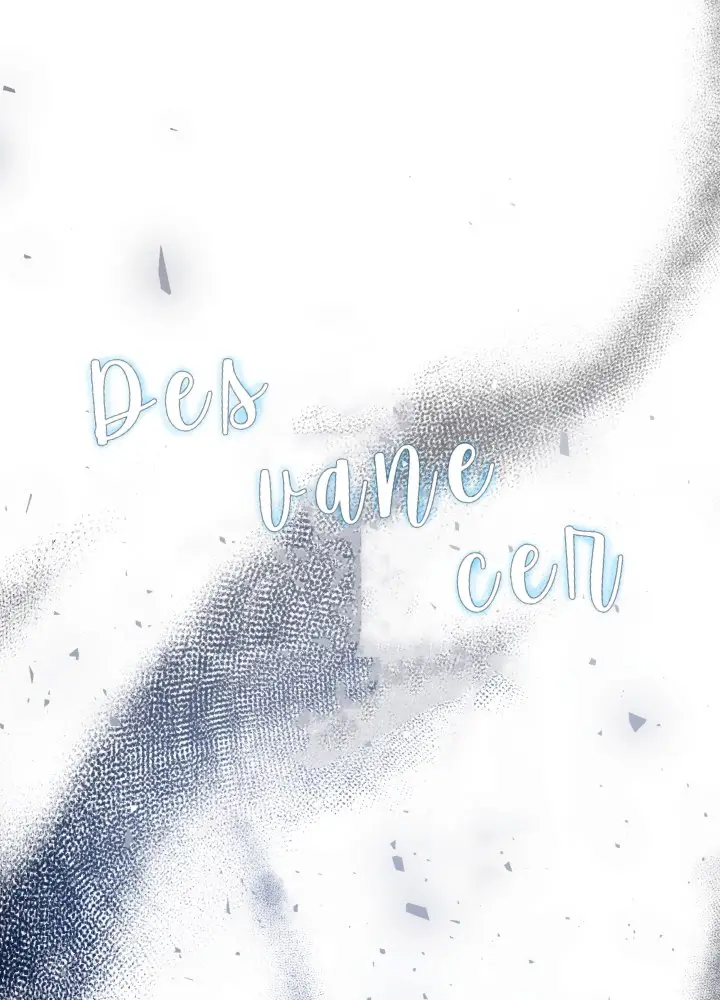 Des
vane
cer